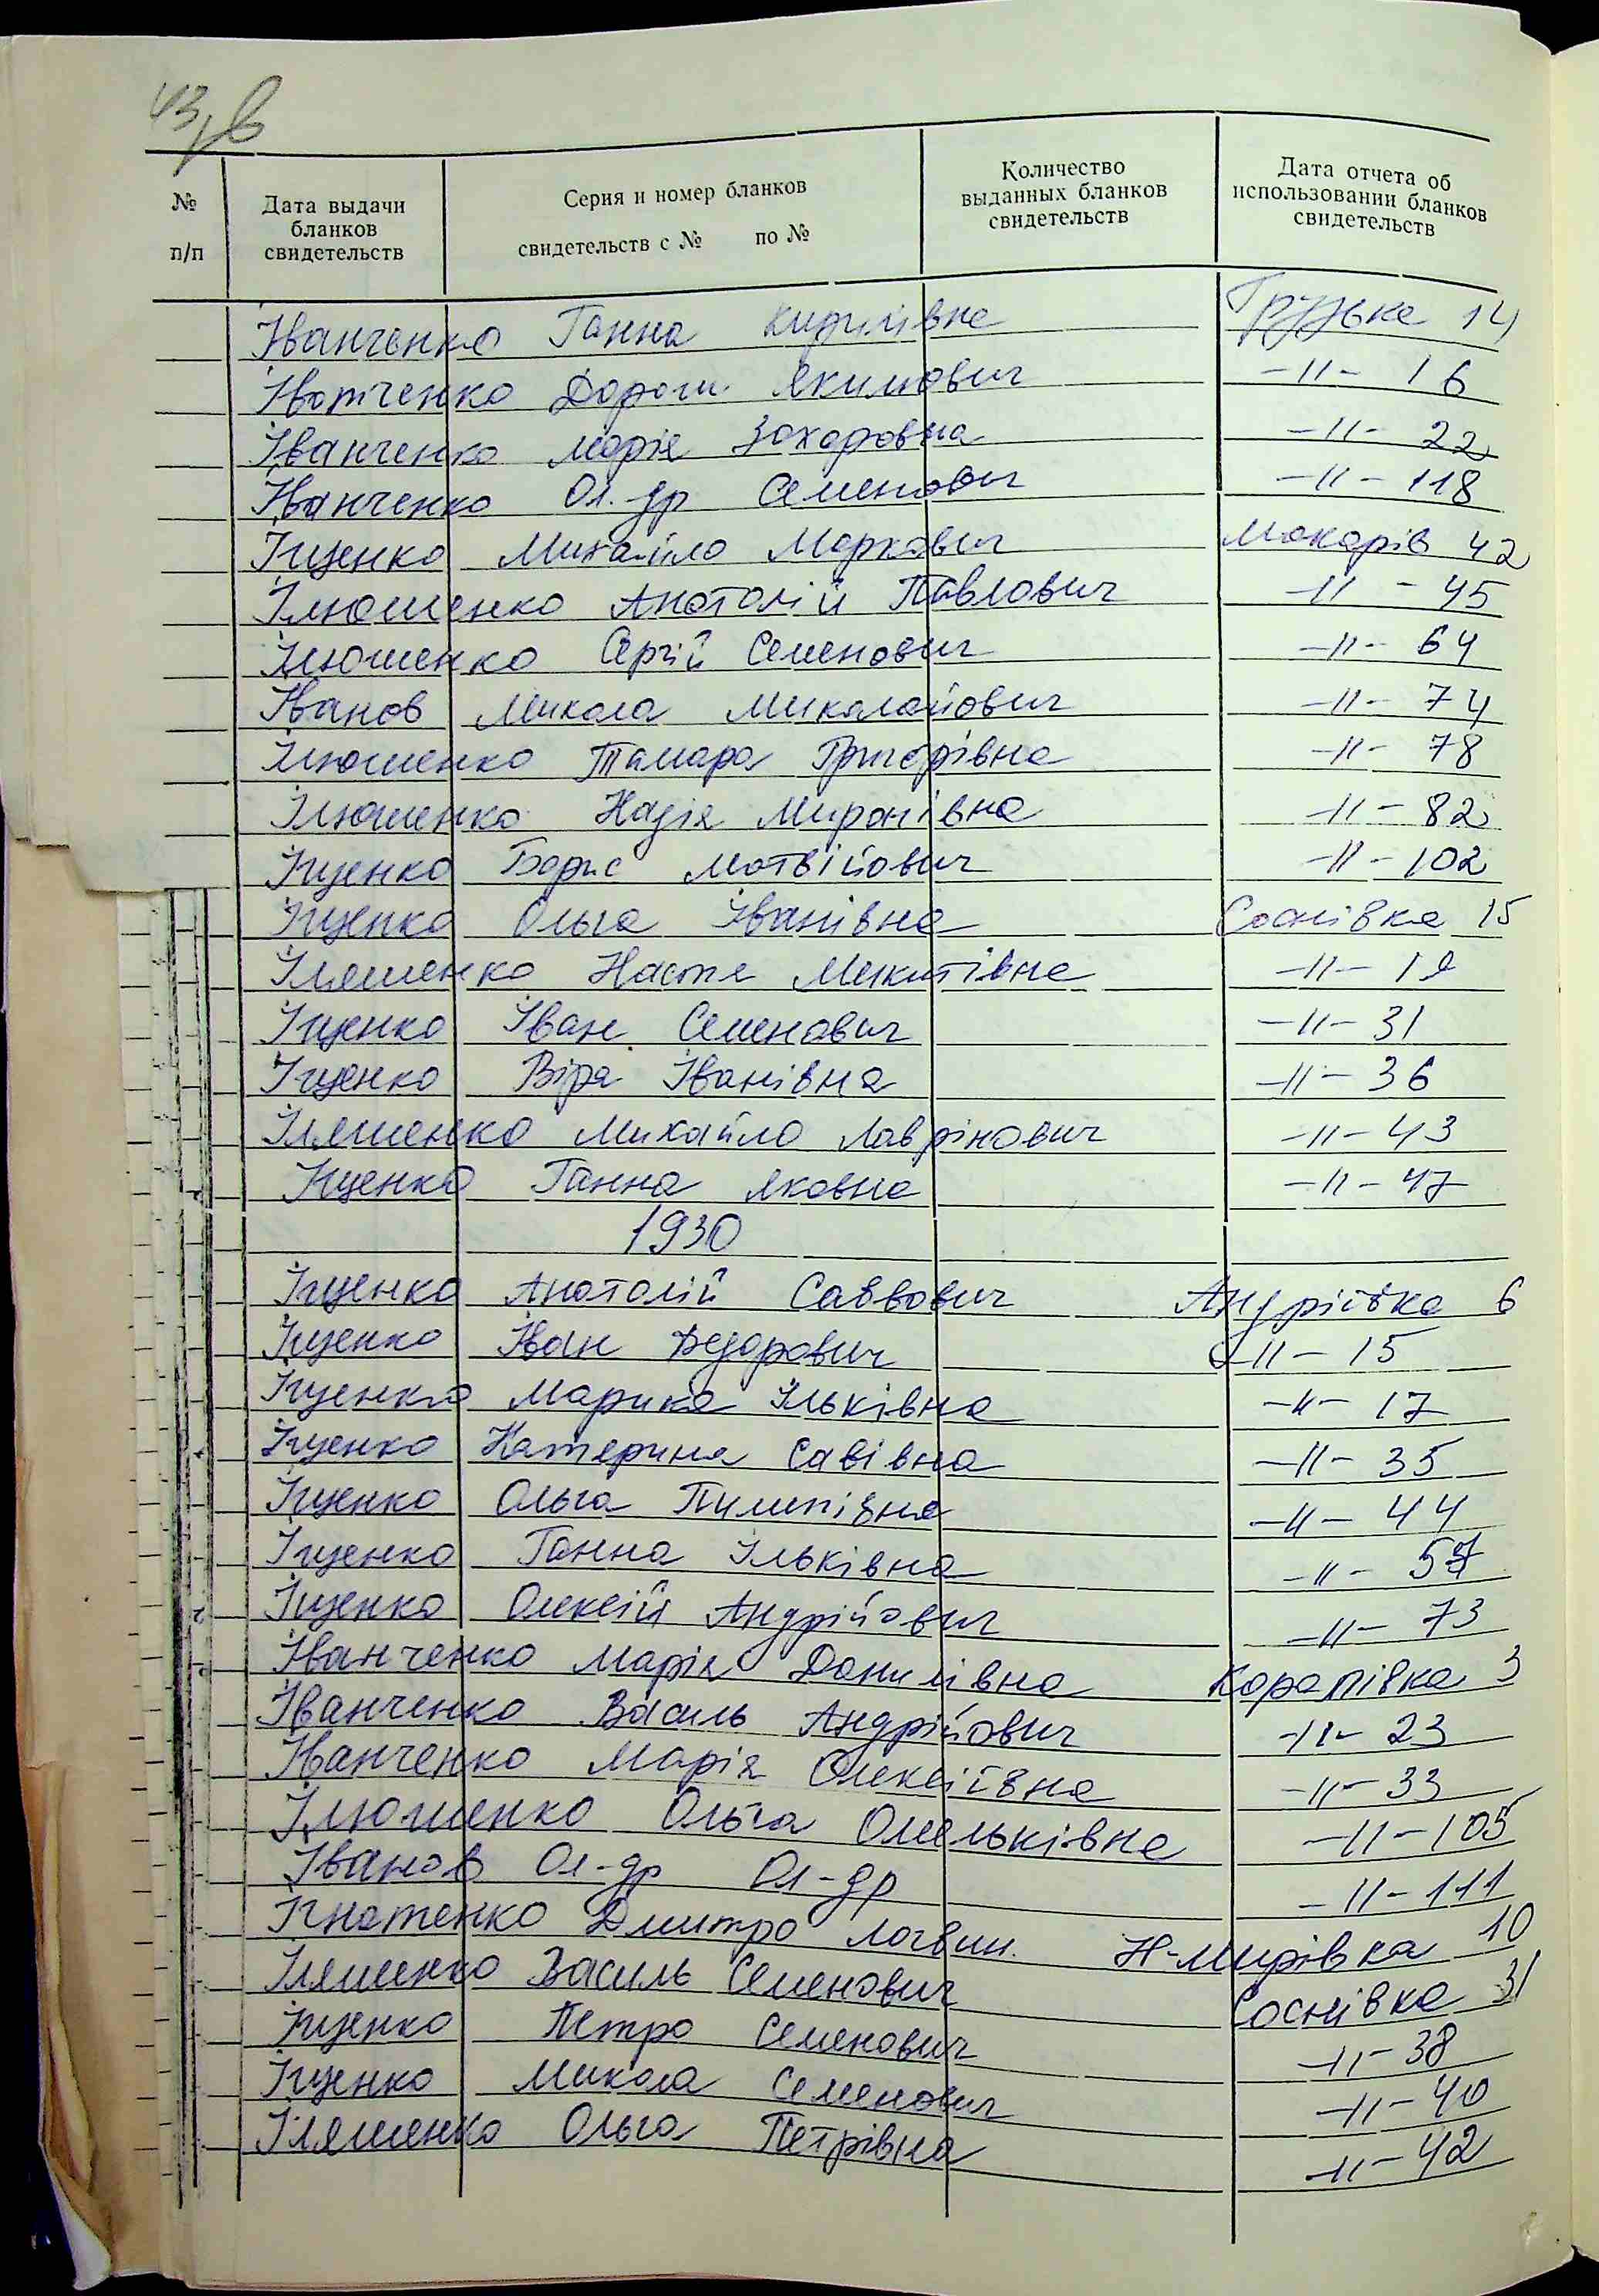 43 зв
№ п/п
Дата выдачи бланков свидетельств
Серия и номер бланков свидетельств с № по №
Количество выданных бланков свидетельств
Дата отчета об использовании бланков свидетельств
Іванченко Ганна Кирилівна Грузьке 14
Іванченко Дорош Якимович -11- 16
Іванченко Марія Захаровна -11- 22
Іванченко Ол.др Семенович -11- 118
Іщенко Михайло Маркович Макарів 42
Ілюшенко Анатолій Павлович -11- 45
Ілюшенко Сергій Семенович -11- 64
Іванов Микола Миколайович -11- 74
Ілюшенко Тамара Григорівна -11- 78
Ілюшенко Надія Миронівна -11- 82
Іщенко Борис Матвійович -11- 102
Іщенко Ольга Іванівна Соснівка 15
Іляшенко Настя Микитівна -11-
Іщенко Іван Семенович -11- 31
Іщенко Віра Іванівна -11- 36
Іляшенко Михайло Лаврінович -11- 43
Іщенко Ганна Яковна -11- 47
1930
Іщенко Анатолій Саввович Андріївка 6
Іщенко Іван Федорович -11- 15
Іщенко Марика Ільківна -11- 17
Іщенко Катерина Савівна -11- 35
Іщенко Ольга Пилипівна -11- 44
Іщенко Ганна Ільківна -11- 57
Іщенко Олексій Андрійович -11- 73
Іванченко Марія Данилівна Королівка 3
Іванченко Василь Андрійович -11- 23
Іванченко Марія Олексіївна -11- 33
Ілюшенко Ольга Омельківна -11- 105
Іванов Ол-др Ол-др -11- 111
Ігнатенко Дмитро Логвин. Н-Мирівка 10
Іляшенко Василь Семенович Соснівка 31
Іщенко Петро Семенович -11- 38
Іщенко Микола Семенович -11- 40
Іляшенко Ольга Петрівна -11- 42